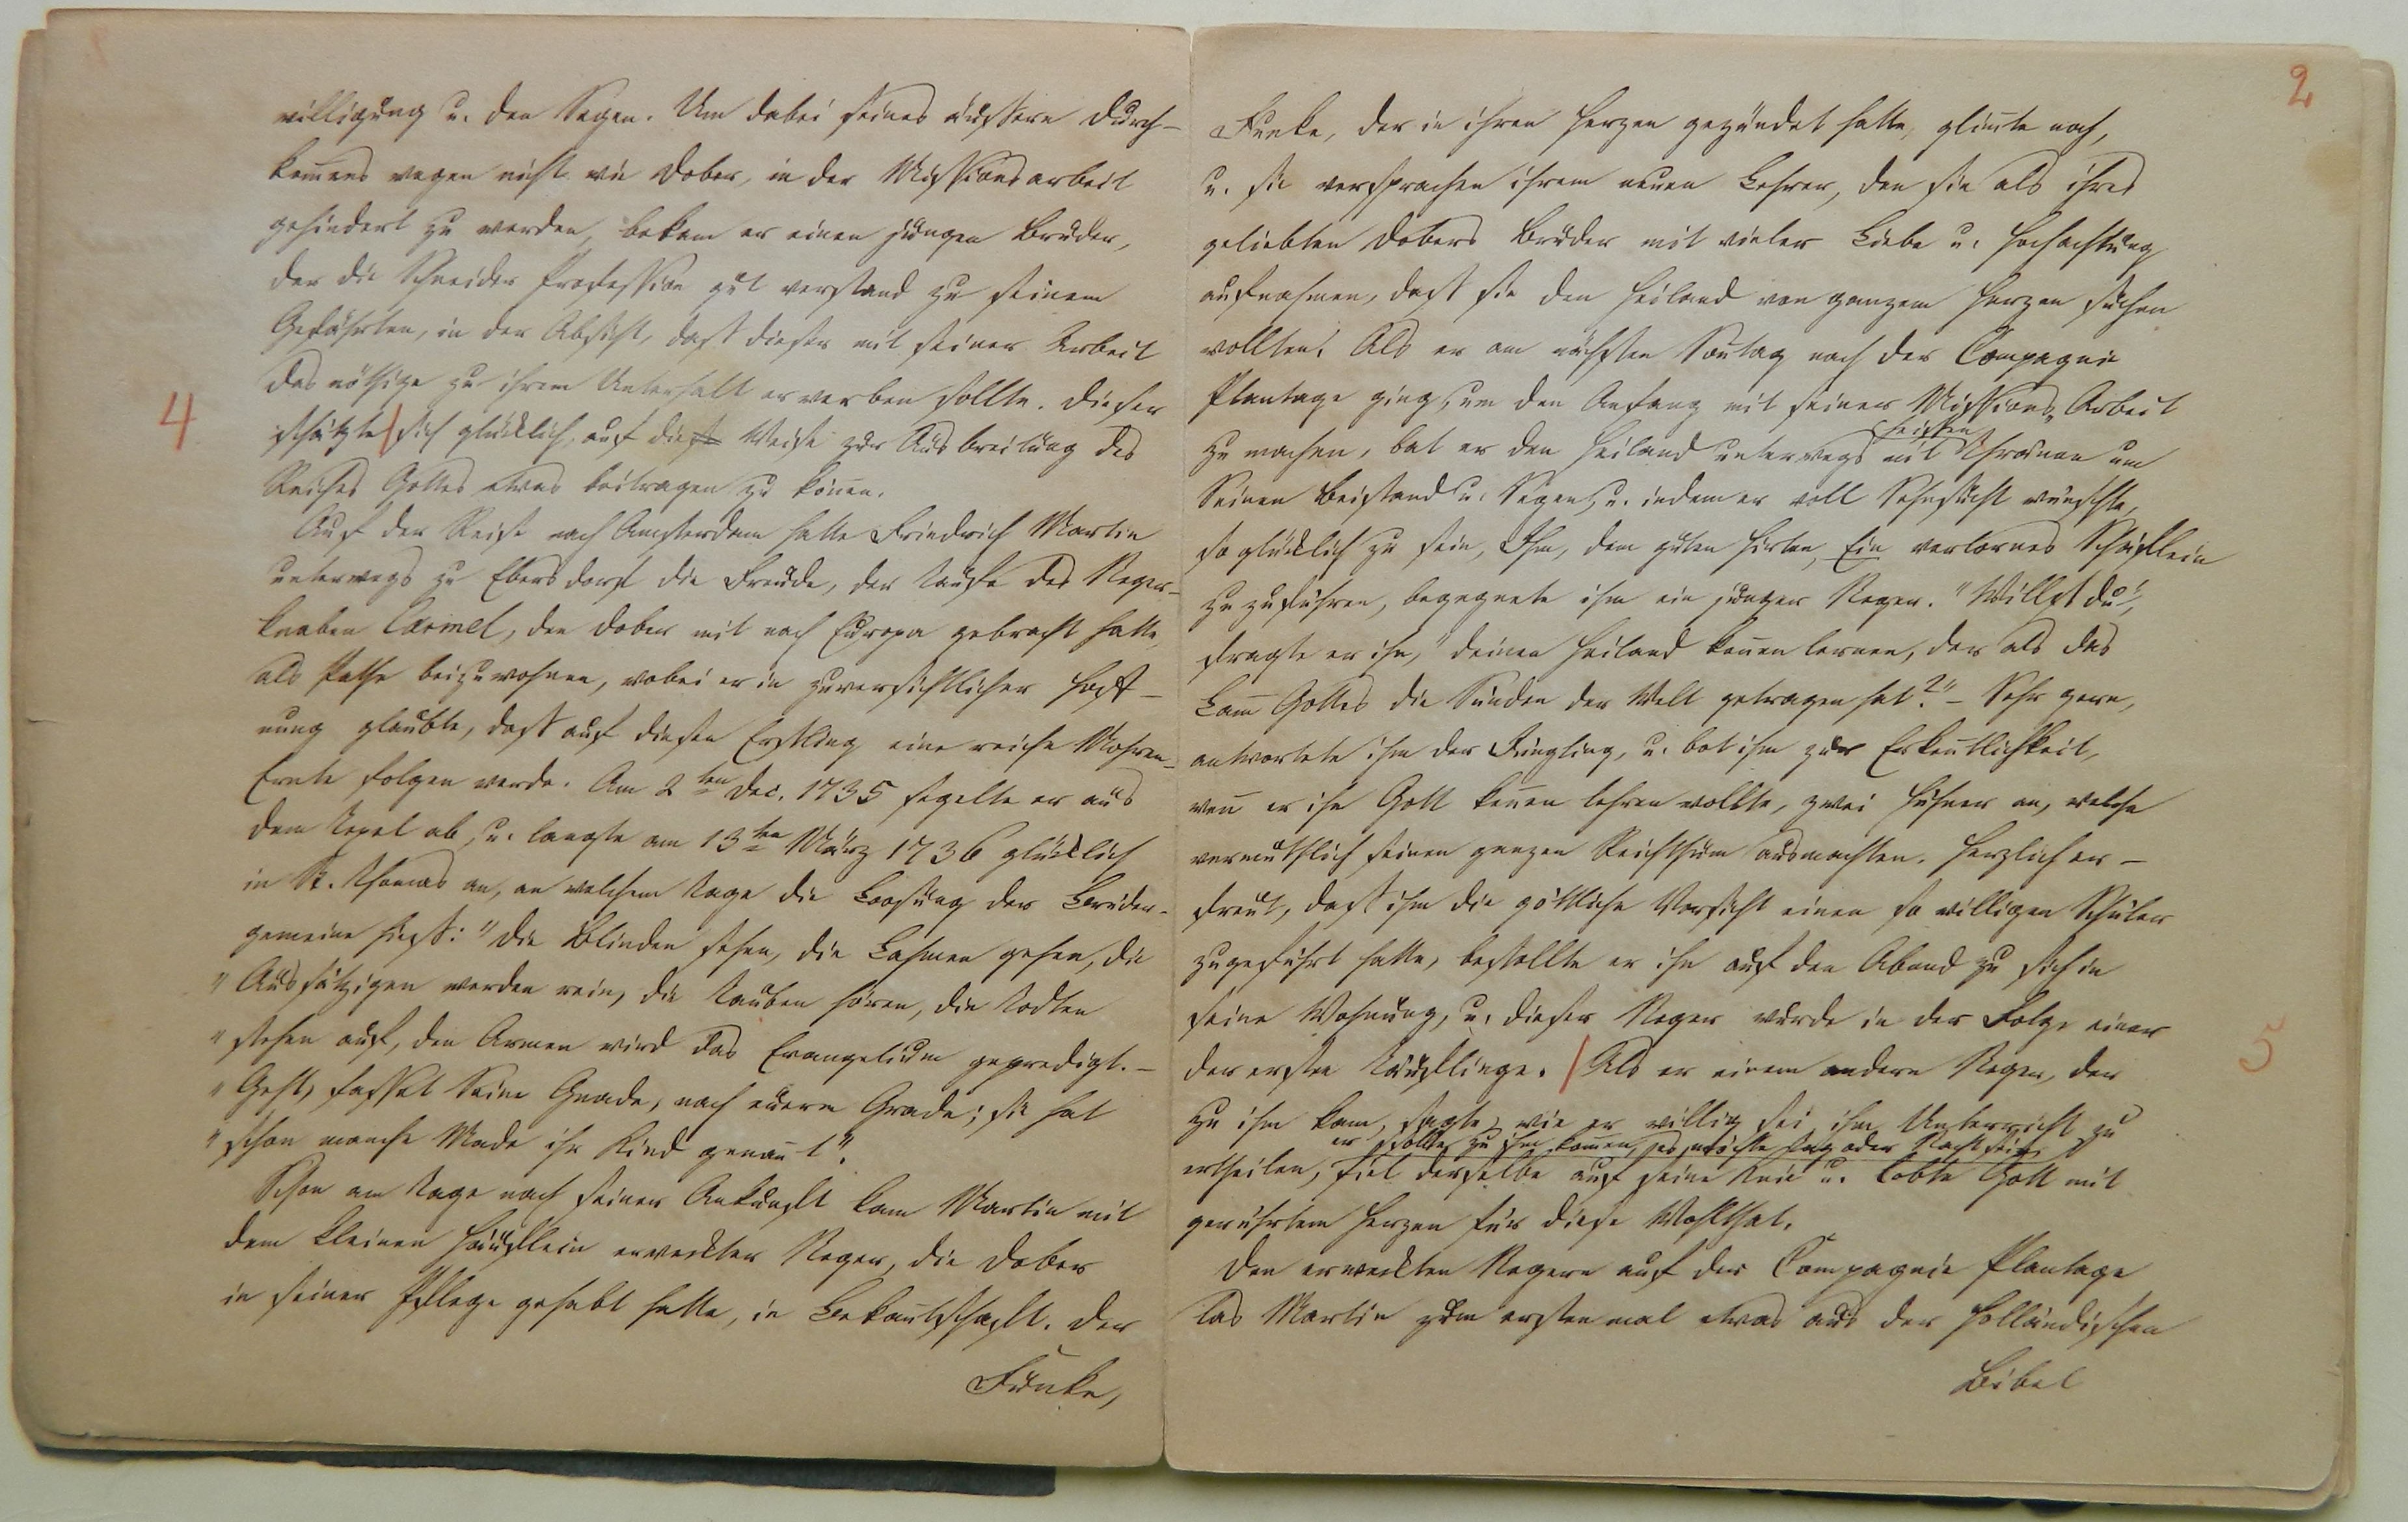 willigung u. den Segen. Um dabei seines äußern Durch-
kom̄ens wegen nicht wie Dober, in der Missionsarbeit
gehindert zu werden, bekam er einen jungen Bruder,
der die Schneider Profession gut verstand zu seinem
Gefährten, in der Absicht, daß dieser mit seiner Arbeit
das nöthige zu ihrem Unterhalt erwerben sollte. Dieser
4 schätzte sich glücklich, auf diese Weise zur Ausbreitung des
Reiches Gottes etwas beitragen zu kön̄en.
Auf der Reise nach Amsterdam hatte Friedrich Martin
unterwegs zu Ebersdorf die Freude, der Taufe des Neger-
knaben Carmel, den Dober mit nach Europa gebracht hatte,
als Pathe beizuwohnen, wobei er in zuversichtlicher Hoff-
nung glaubte, daß auf diesen Erstling eine reiche Mohren-
Ernte folgen werde. Am 2ten Dec. 1735 segelte er aus
dem Texel ab, u. langte am 13ten März 1736 glücklich
in St. Thomas an, an welchem Tage die Loosung der Brüder-
gemeine hieß: "Die Blinden sehen, die Lahmen gehen, die
"Aussätzigen werden rein, die Tauben hören, die Todten
"stehen auf, den Armen wird das Evangelium gepredigt. –
"Geht, fasset Seine Gnade, nach euerm Grade; sie hat
"schon manche Made ihr Kind genan̄t".
Schon am Tage nach seiner Ankunft kam Martin mit
dem kleinen Häuflein erweckter Neger, die Dober
in seiner Pflege gehabt hatte, in Bekan̄tschaft. Der
Funke,
2
Funke, der in ihren Herzen gezündet hatte, glim̄te noch,
u. sie versprachen ihrem neuen Lehrer, den sie als ihres
geliebten Dobers Bruder mit vieler Liebe u. Hochachtung
aufnahmen, daß sie den Heiland von ganzem Herzen suchen
wollten. Als er am nächsten Son̄tag nach der Compagnie
Plantage ging, um den Anfang mit seiner Missions-Arbeit
heißen
zu machen, bat er den Heiland unterwegs mit Thränen um
Seinen Beistand u. Segen, u. indem er voll Sehnsucht wünschte,
so glücklich zu sein, Ihm, dem guten Hirten, Ein verlornes Schäflein
zuzuführen, begegnete ihm ein junger Neger. "Willst du",
fragte er ihn, "deinen Heiland ken̄en lernen, der als das
Lam̄ Gottes die Sünden der Welt getragen hat?" – Sehr gern,
antwortete ihm der Jüngling, u. bot ihm zur Erken̄tlichkeit,
wen̄ er ihn Gott ken̄en lehren wollte, zwei Hühner an, welche
vermuthlich seinen ganzen Reichthum ausmachten. Herzlich er-
freut, daß ihm die göttliche Vorsicht einen so willigen Schüler
zugeführt hatte, bestellte er ihn auf den Abend zu sich in
seine Wohnung, u. dieser Neger wurde in der Folge einer
der ersten Täuflinge. Als er einem andern Neger, der 5
zu ihm kam, sagte, wie er willig sei ihm Unterricht zu
er sollte zu ihm kom̄en, es möchte Tag oder Nacht sein,
ertheilen, fiel derselbe auf seine Knie u. lobte Gott mit
gerührtem Herzen für diese Wohlthat.
Den erweckten Negern auf der Compagnie Plantage
las Martin zum erstenmal etwas aus der holländischen
Bibel